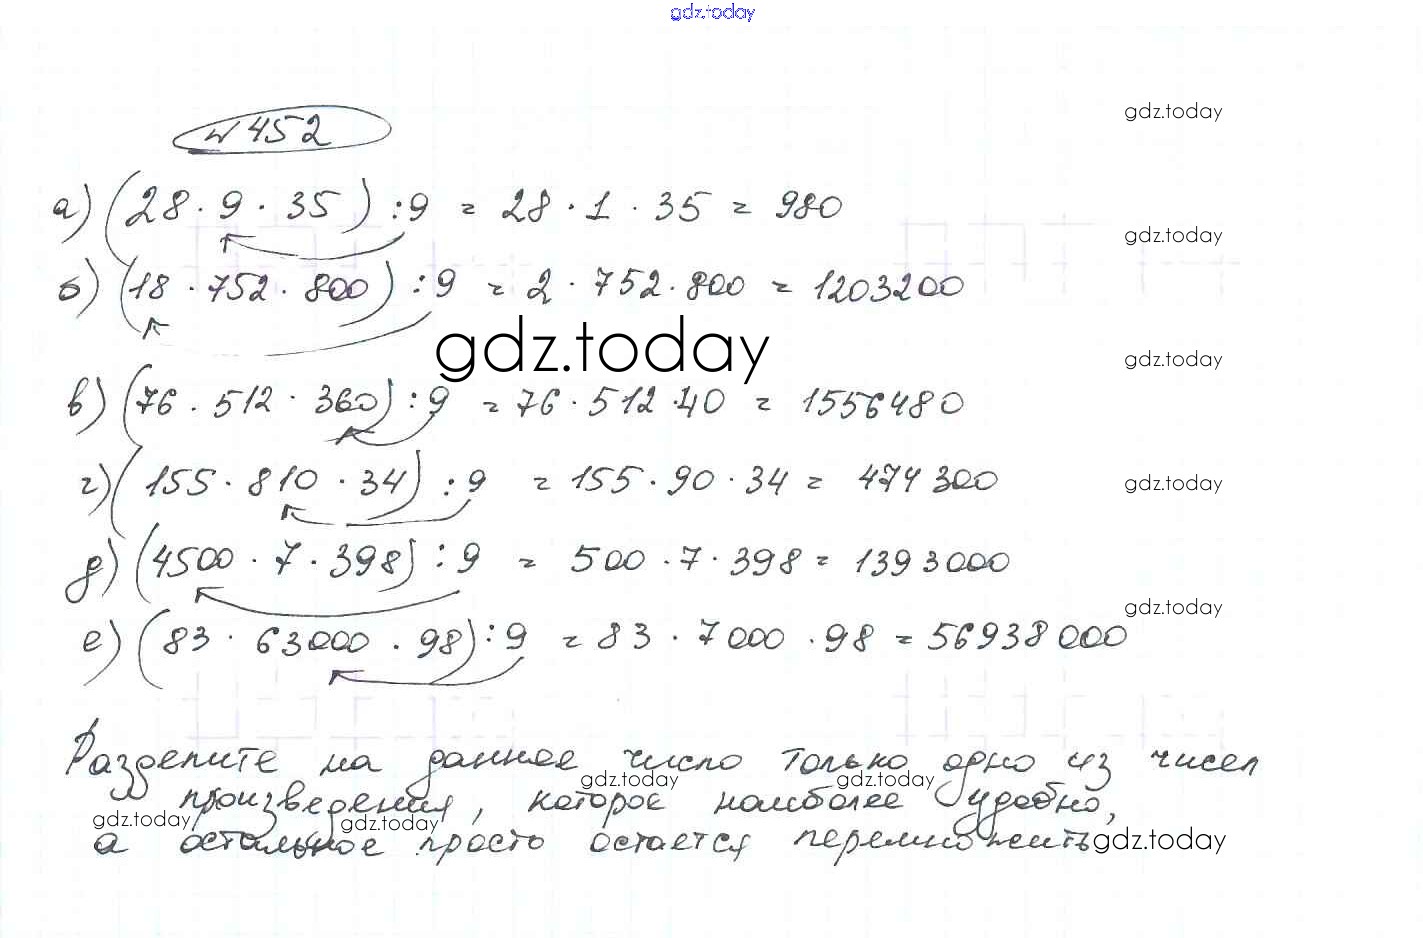 gdz.today
№ 452
gdz.today
а) (28 · 9 · 35) : 9 = 28 · 1 · 35 = 980
gdz.today
б) (18 · 752 · 800) : 9 = 2 · 752 · 800 = 1203200
gdz.today
gdz.today
в) (76 · 512 · 360) : 9 = 76 · 512 · 40 = 1556480
г) (155 · 810 · 34) : 9 = 155 · 90 · 34 = 474300
gdz.today
д) (4500 · 7 · 398) : 9 = 500 · 7 · 398 = 1393000
gdz.today
е) (83 · 63000 · 98) : 9 = 83 · 7000 · 98 = 56938000
Разделите на данное число только одно из чисел
gdz.today gdz.today
произведения, которое наиболее удобно,
gdz.today gdz.today
а остальное просто остается перемножить
gdz.today